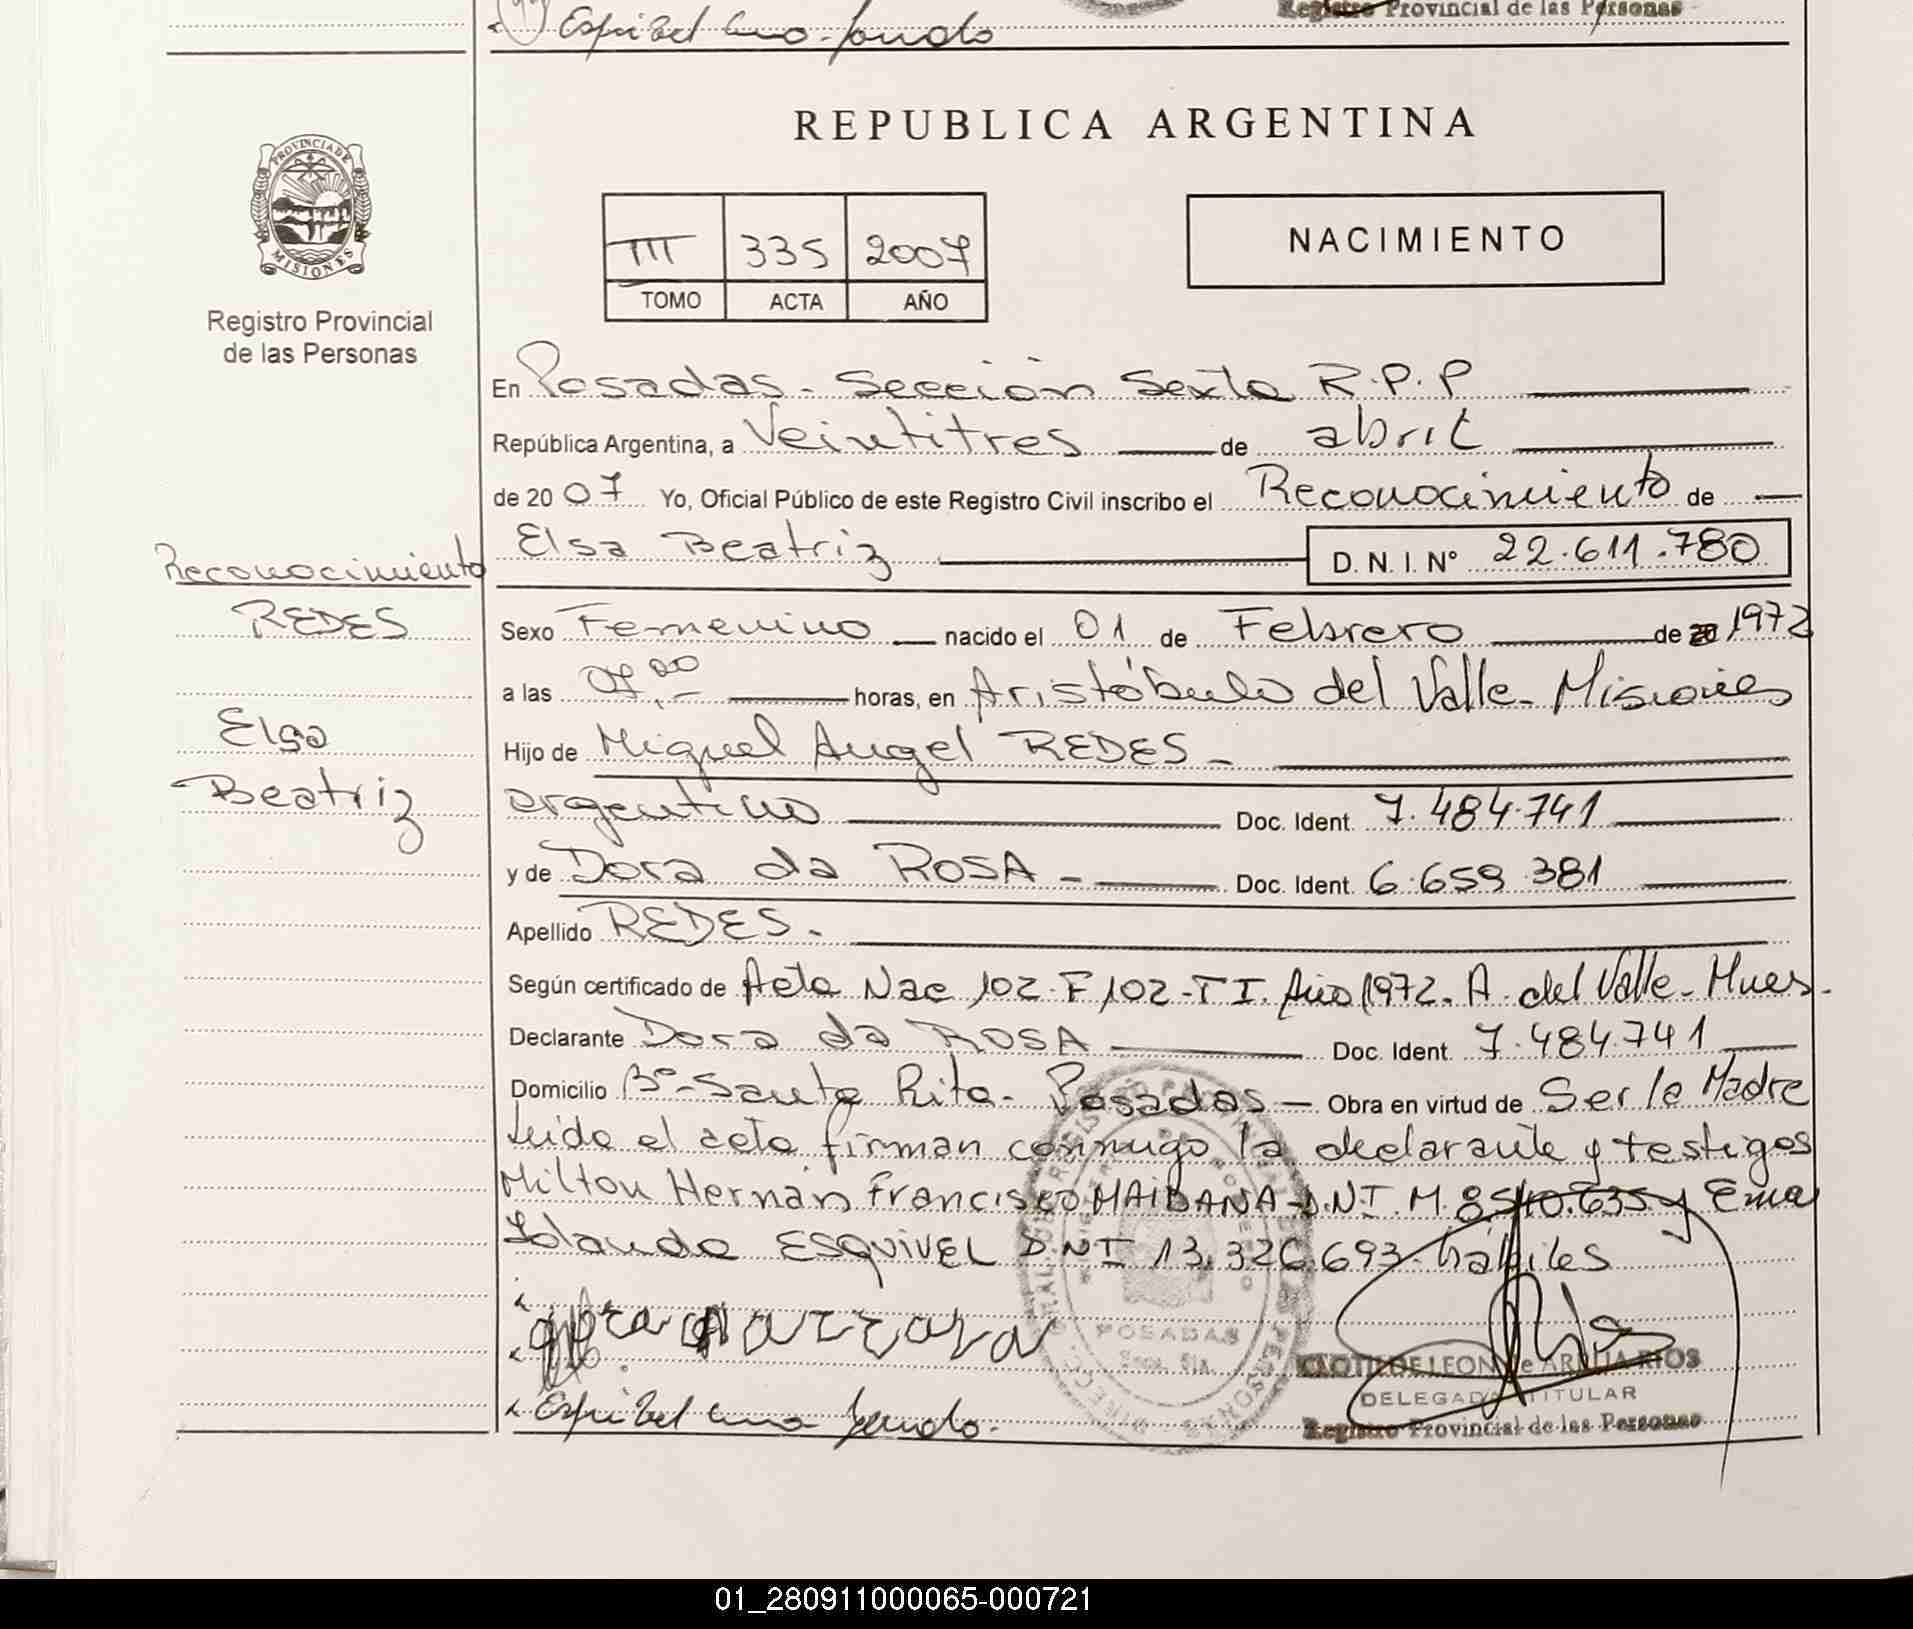 Espibel Ema
Registro Provincial de las Personas
REPUBLICA ARGENTINA
PROVINCIA DE
MISIONES
Registro Provincial
de las Personas
III 335 2007
TOMO ACTA AÑO
NACIMIENTO
En Posadas - Sección Sexta R.P.P
República Argentina, a Veintitres de abril
de 2007 Yo, Oficial Público de este Registro Civil inscribo el Reconocimiento de
Elsa Beatriz D. N. I. N° 22.611.780
Reconocimiento
REDES
Elsa
Beatriz
Sexo Femenino nacido el 01 de Febrero de 20 1972
a las 07,00 horas, en Aristóbulo del Valle - Misiones
Hijo de Miguel Angel REDES -
argentino Doc. Ident. 7.484.741
y de Dora da ROSA - Doc. Ident. 6.659.381
Apellido REDES.
Según certificado de Acta Nac 102 F 102 - T I. Año 1972. A. del Valle - Mnes.
Declarante Dora da ROSA Doc. Ident. 7.484.741
Domicilio B° Santa Rita - Posadas - Obra en virtud de Ser la Madre
Leida el acta firman conmigo la declarante y testigos
Milton Hernán Francisco MAIDANA D.N.I. M. 8.540.635 y Ema
Yolanda ESQUIVEL D.N.I 13.326.693 hábiles
POSADAS
Secc. 6ta.
CLOTILDE LEON de ARRUA RIOS
DELEGADA TITULAR
Registro Provincial de las Personas
Espibel Ema
01_280911000065-000721